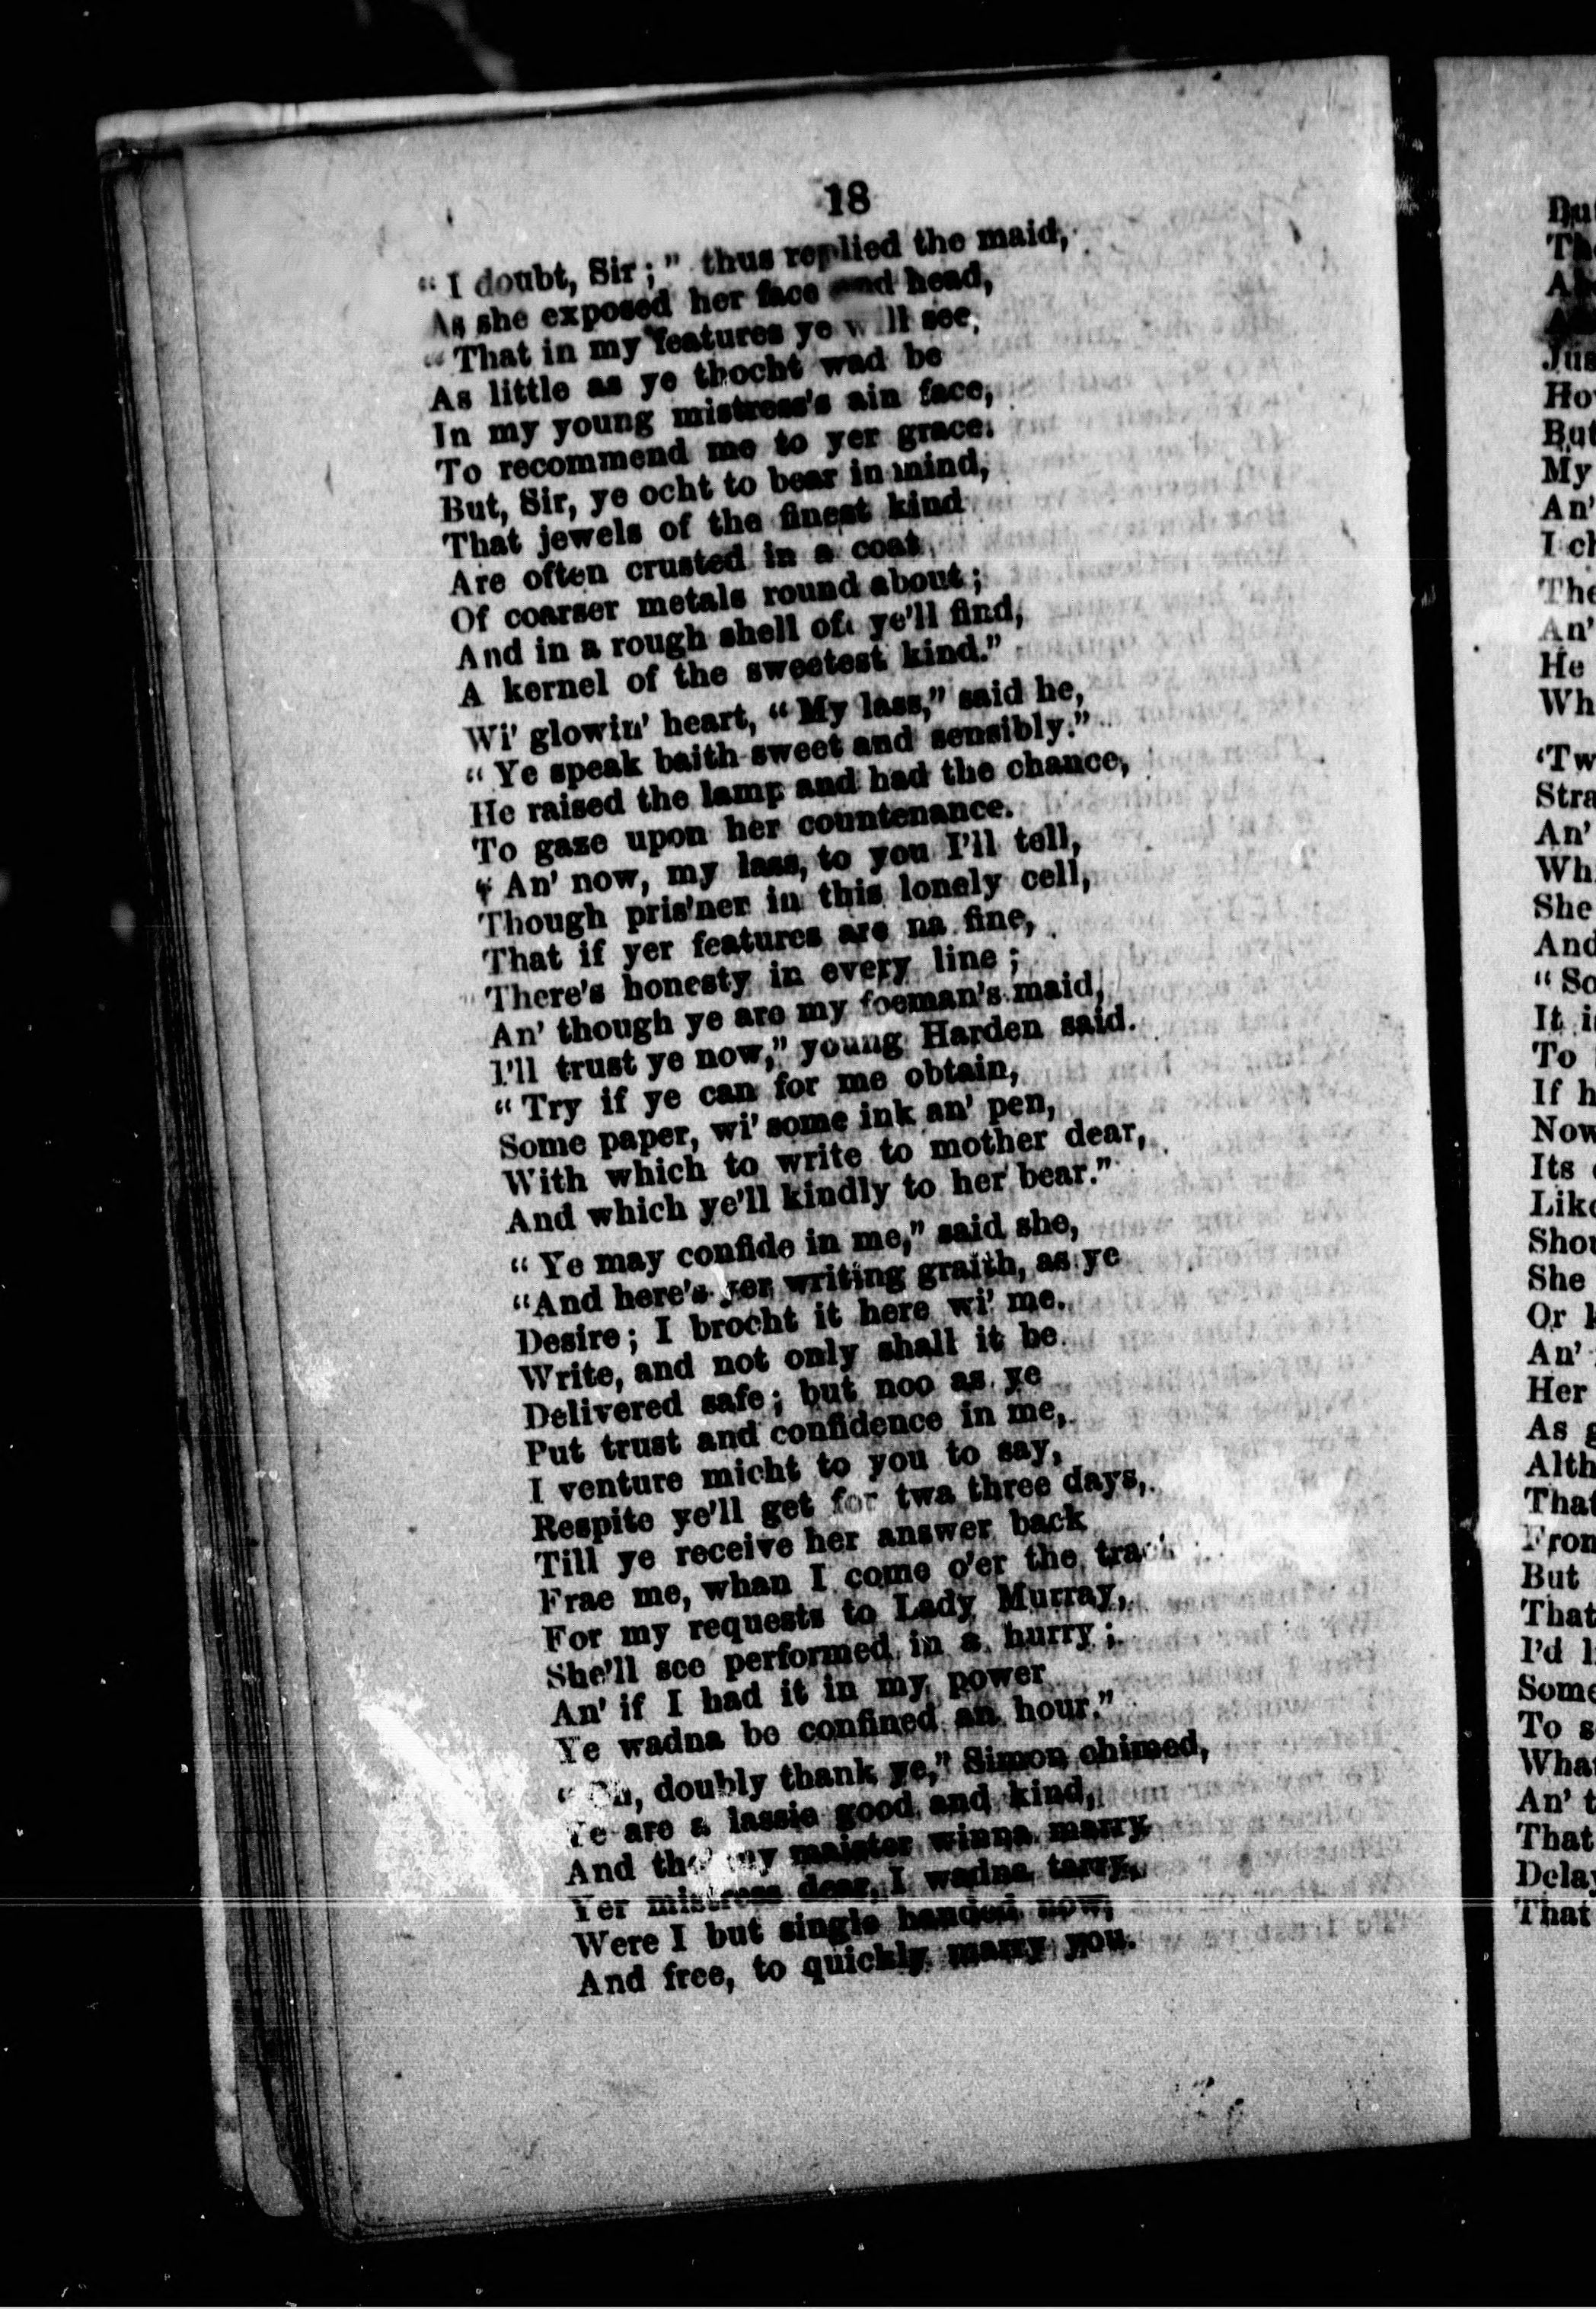 18
“I doubt, Sir;” thus replied the maid,
As she exposed her face and head,
“That in my features ye will see,
As little as ye thocht wad be
In my young mistress's ain face,
To recommend me to yer grace.
But, Sir, ye ocht to bear in mind,
That jewels of the finest kind
Are often crusted in a coat
Of coarser metals round about;
And in a rough shell oft ye'll find,
A kernel of the sweetest kind.”
Wi' glowin' heart, “My lass,” said he,
“Ye speak baith sweet and sensibly.”
He raised the lamp and had the chance,
To gaze upon her countenance.
“An' now, my lass, to you I'll tell,
Though pris'ner in this lonely cell,
That if yer features are na fine,
There's honesty in every line;
An' though ye are my foeman's maid,
I'll trust ye now,” young Harden said.
“Try if ye can for me obtain,
Some paper, wi' some ink an' pen,
With which to write to mother dear,
And which ye'll kindly to her bear.”
“Ye may confide in me,” said she,
“And here's yer writing graith, as ye
Desire; I brocht it here wi' me.
Write, and not only shall it be
Delivered safe; but noo as ye
Put trust and confidence in me,
I venture micht to you to say,
Respite ye'll get for twa three days,
Till ye receive her answer back
Frae me, whan I come o'er the track
For my requests to Lady Murray,
She'll see performed in a hurry;
An' if I had it in my power
Ye wadna be confined an hour.”
doubly thank ye,” Simon chimed,
Ye are a lassie good and kind,
And tho' my maister winna marry
Yer mistress dear, I wadna tarry,
Were I but single handed now,
And free, to quickly marry you.
But
The
Jus
Ho
But
My
An'
I
The
An'
He
Wh
'Tw
Stra
An'
Wh
She
And
“So
It
To
If h
Now
Its
Like
Shou
She
Or
An'
Her
As g
Alth
That
From
But
That
I'd
Some
To s
What
An' t
That
Delay
That